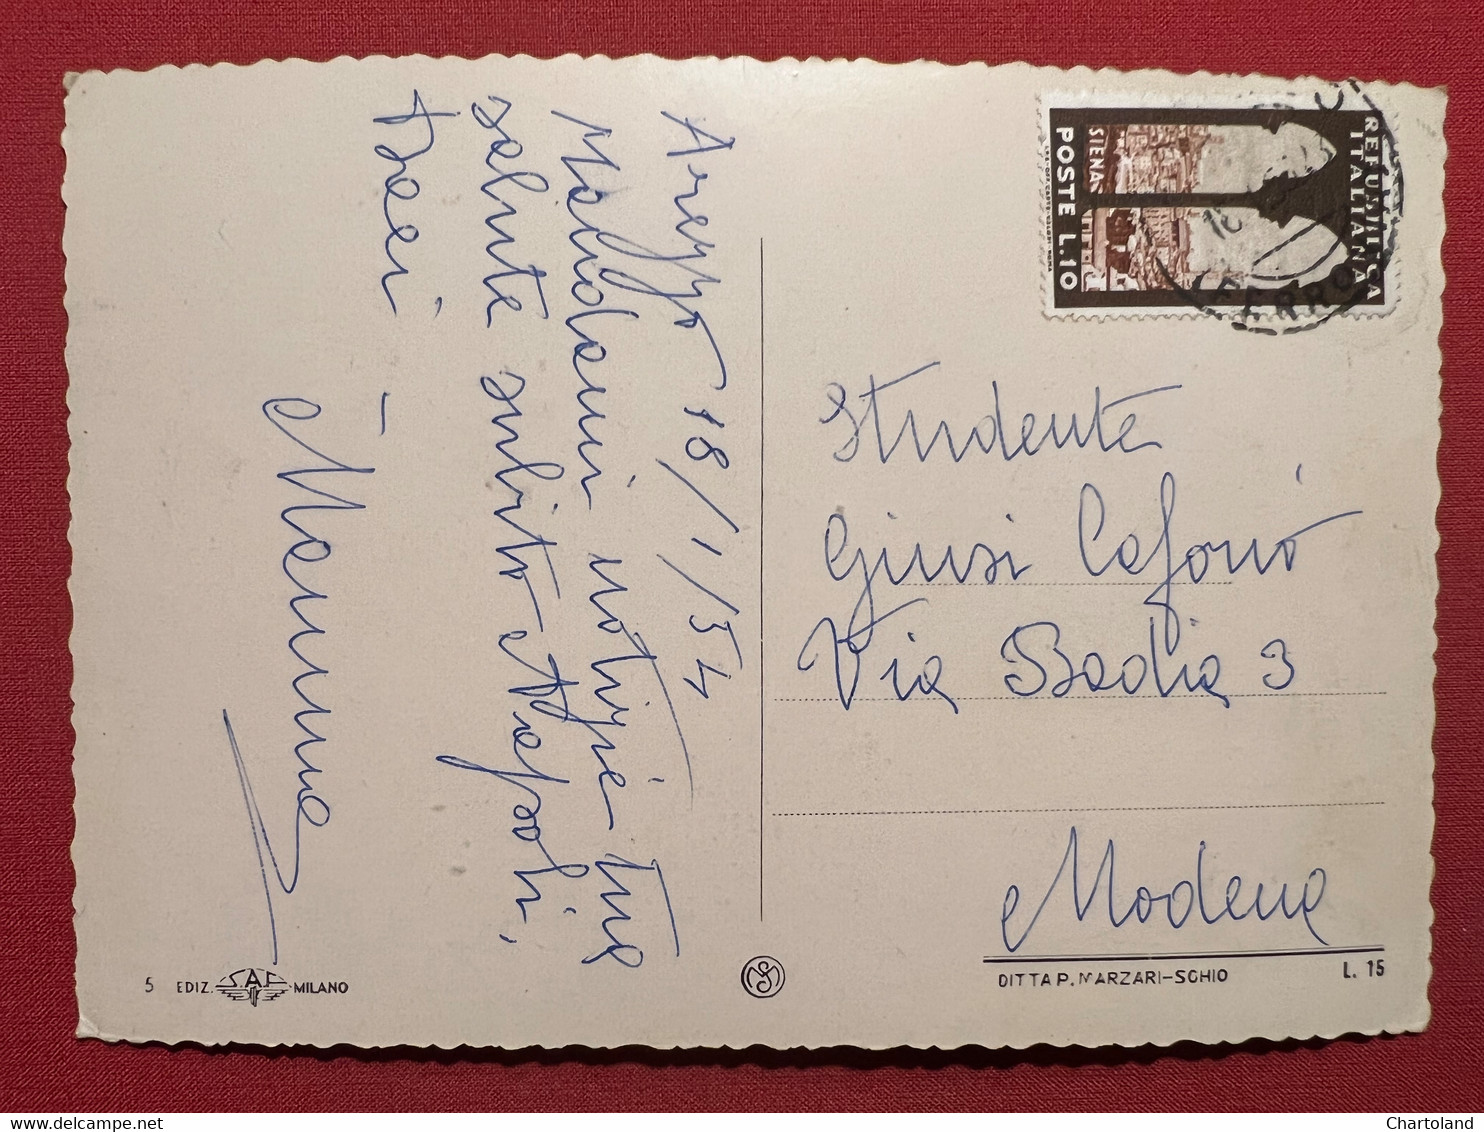 Arezzo 18/1/54
Mandami notizie tua
salute subito Napoli,
Baci
Mamma
REPUBBLICA
ITALIANA
SIENA
POSTE L.10
FERRO
Studente
Giusi Caforió
Via Badia 3
Modena
5 EDIZ. SAF MILANO
DITTA P. MARZARI-SCHIO
L. 15
Chartoland